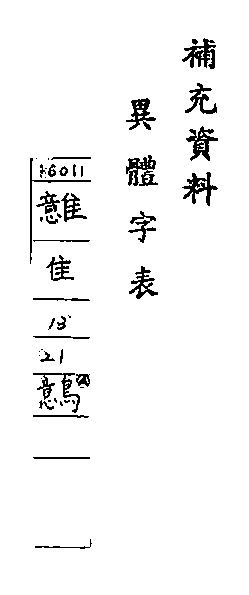 補充資料
異體字表
⿰意隹
隹
13
21
鷾